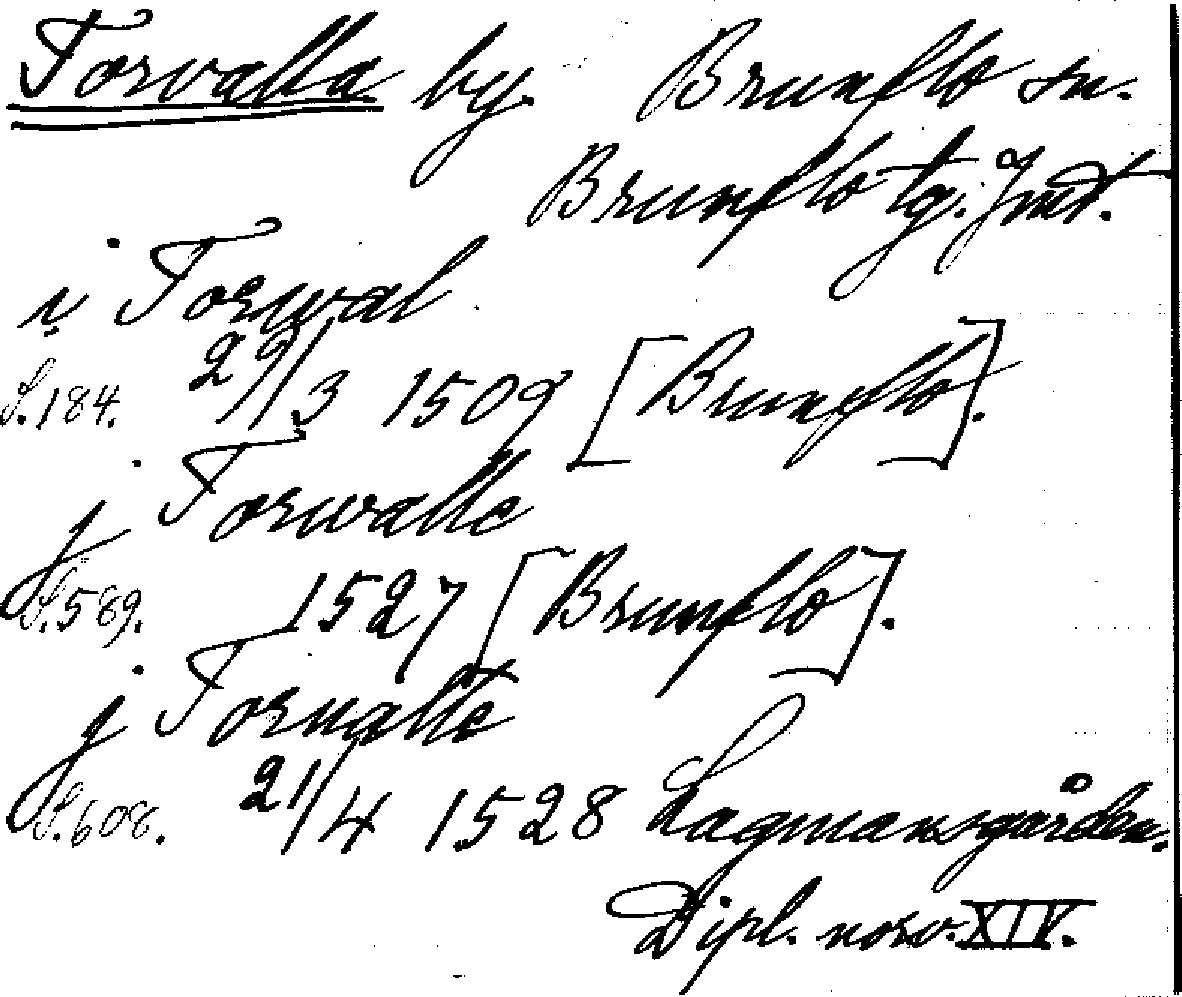 Torvalla by. Brunflo sn.
Brunflo tg. Jmt.
i Torwal
S. 184. 29/3 1509 [Brunflo].
j Torwalle
S. 589. 1527 [Brunflo].
j Torualle
S. 608. 21/4 1528 Lagmansgården.
Dipl. norv. XIV.